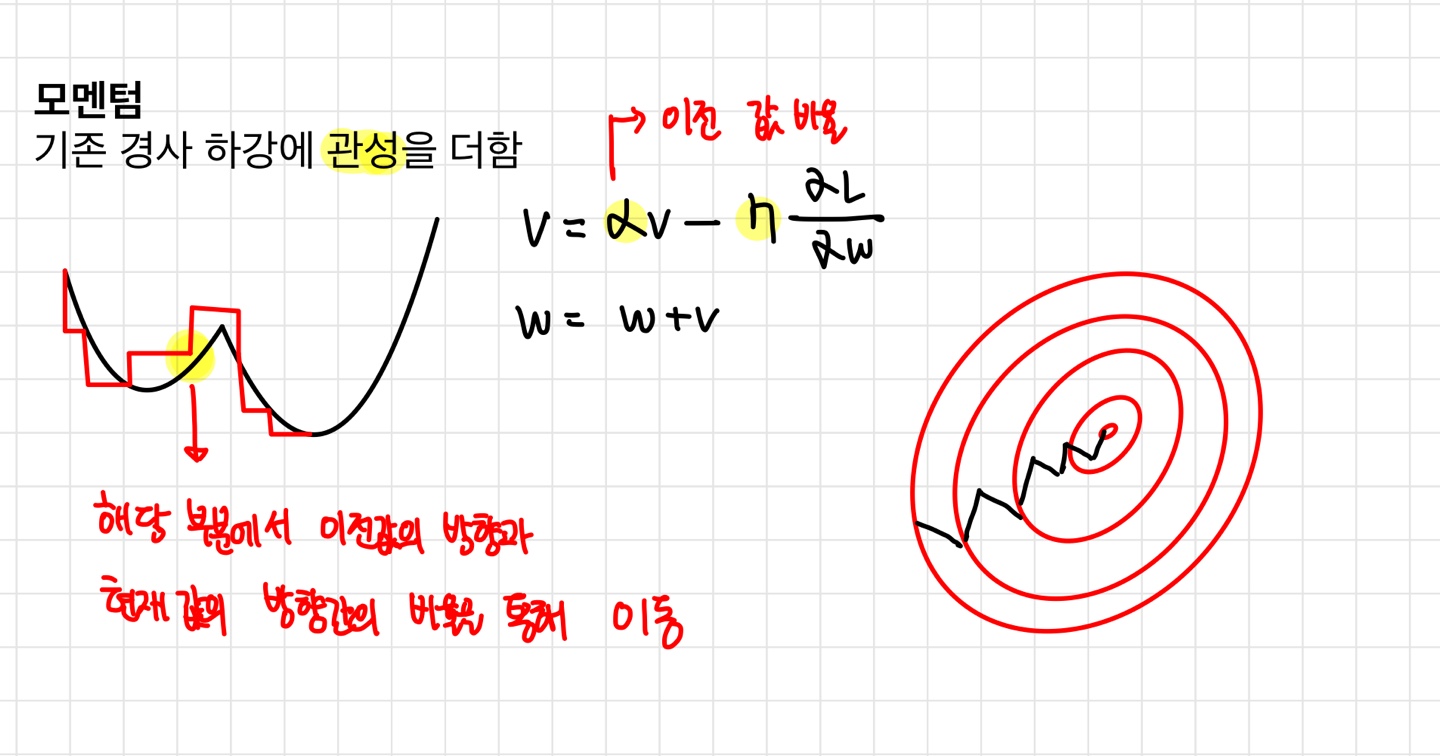 모멘텀
기존 경사 하강에 관성을 더함
이전 값 비율
V = αV − η ∂L/∂w
w = w+v
해당 부분에서 이전값의 방향과
현재 값의 방향값의 비율을 통해 이동